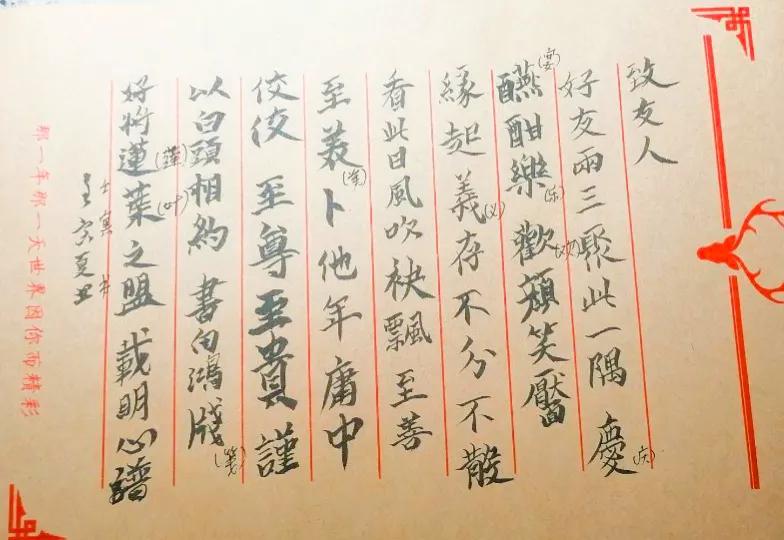 致友人
好友兩三聚此一隅 慶(庆)
醼(宴)酣樂(乐)歡(欢)顏笑靨
緣起義(义)存不分不散
看此日風吹袂飄至善
至美卜他年庸中
佼佼 至尊至貴 謹
以白頭相約 書向鴻牋(笺)
好將蓮(莲)葉(叶)之盟 載明心譜
寅夏
那一年那一天世界因你而精彩